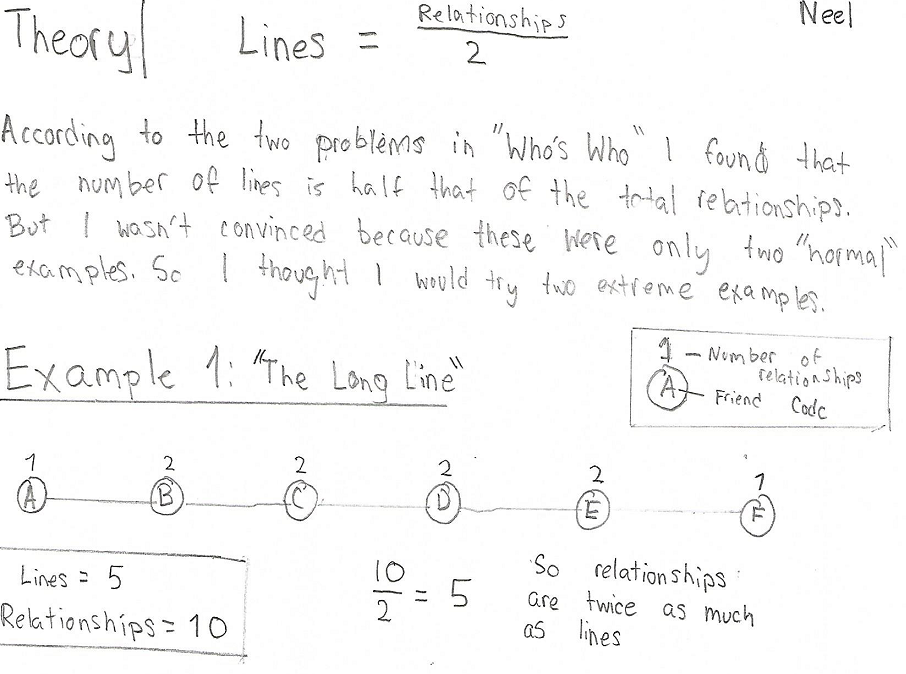 Neel
Theory Lines = Relationships / 2
According to the two problems in "Who's Who" I found that
the number of lines is half that of the total relationships.
But I wasn't convinced because these were only two "normal"
examples. So I thought I would try two extreme examples.
Example 1: "The Long Line"
1 — Number of
relationships
A — Friend Code
1 2 2 2 2 1
A B C D E F
Lines = 5
Relationships = 10
10 / 2 = 5
So relationships
are twice as much
as lines